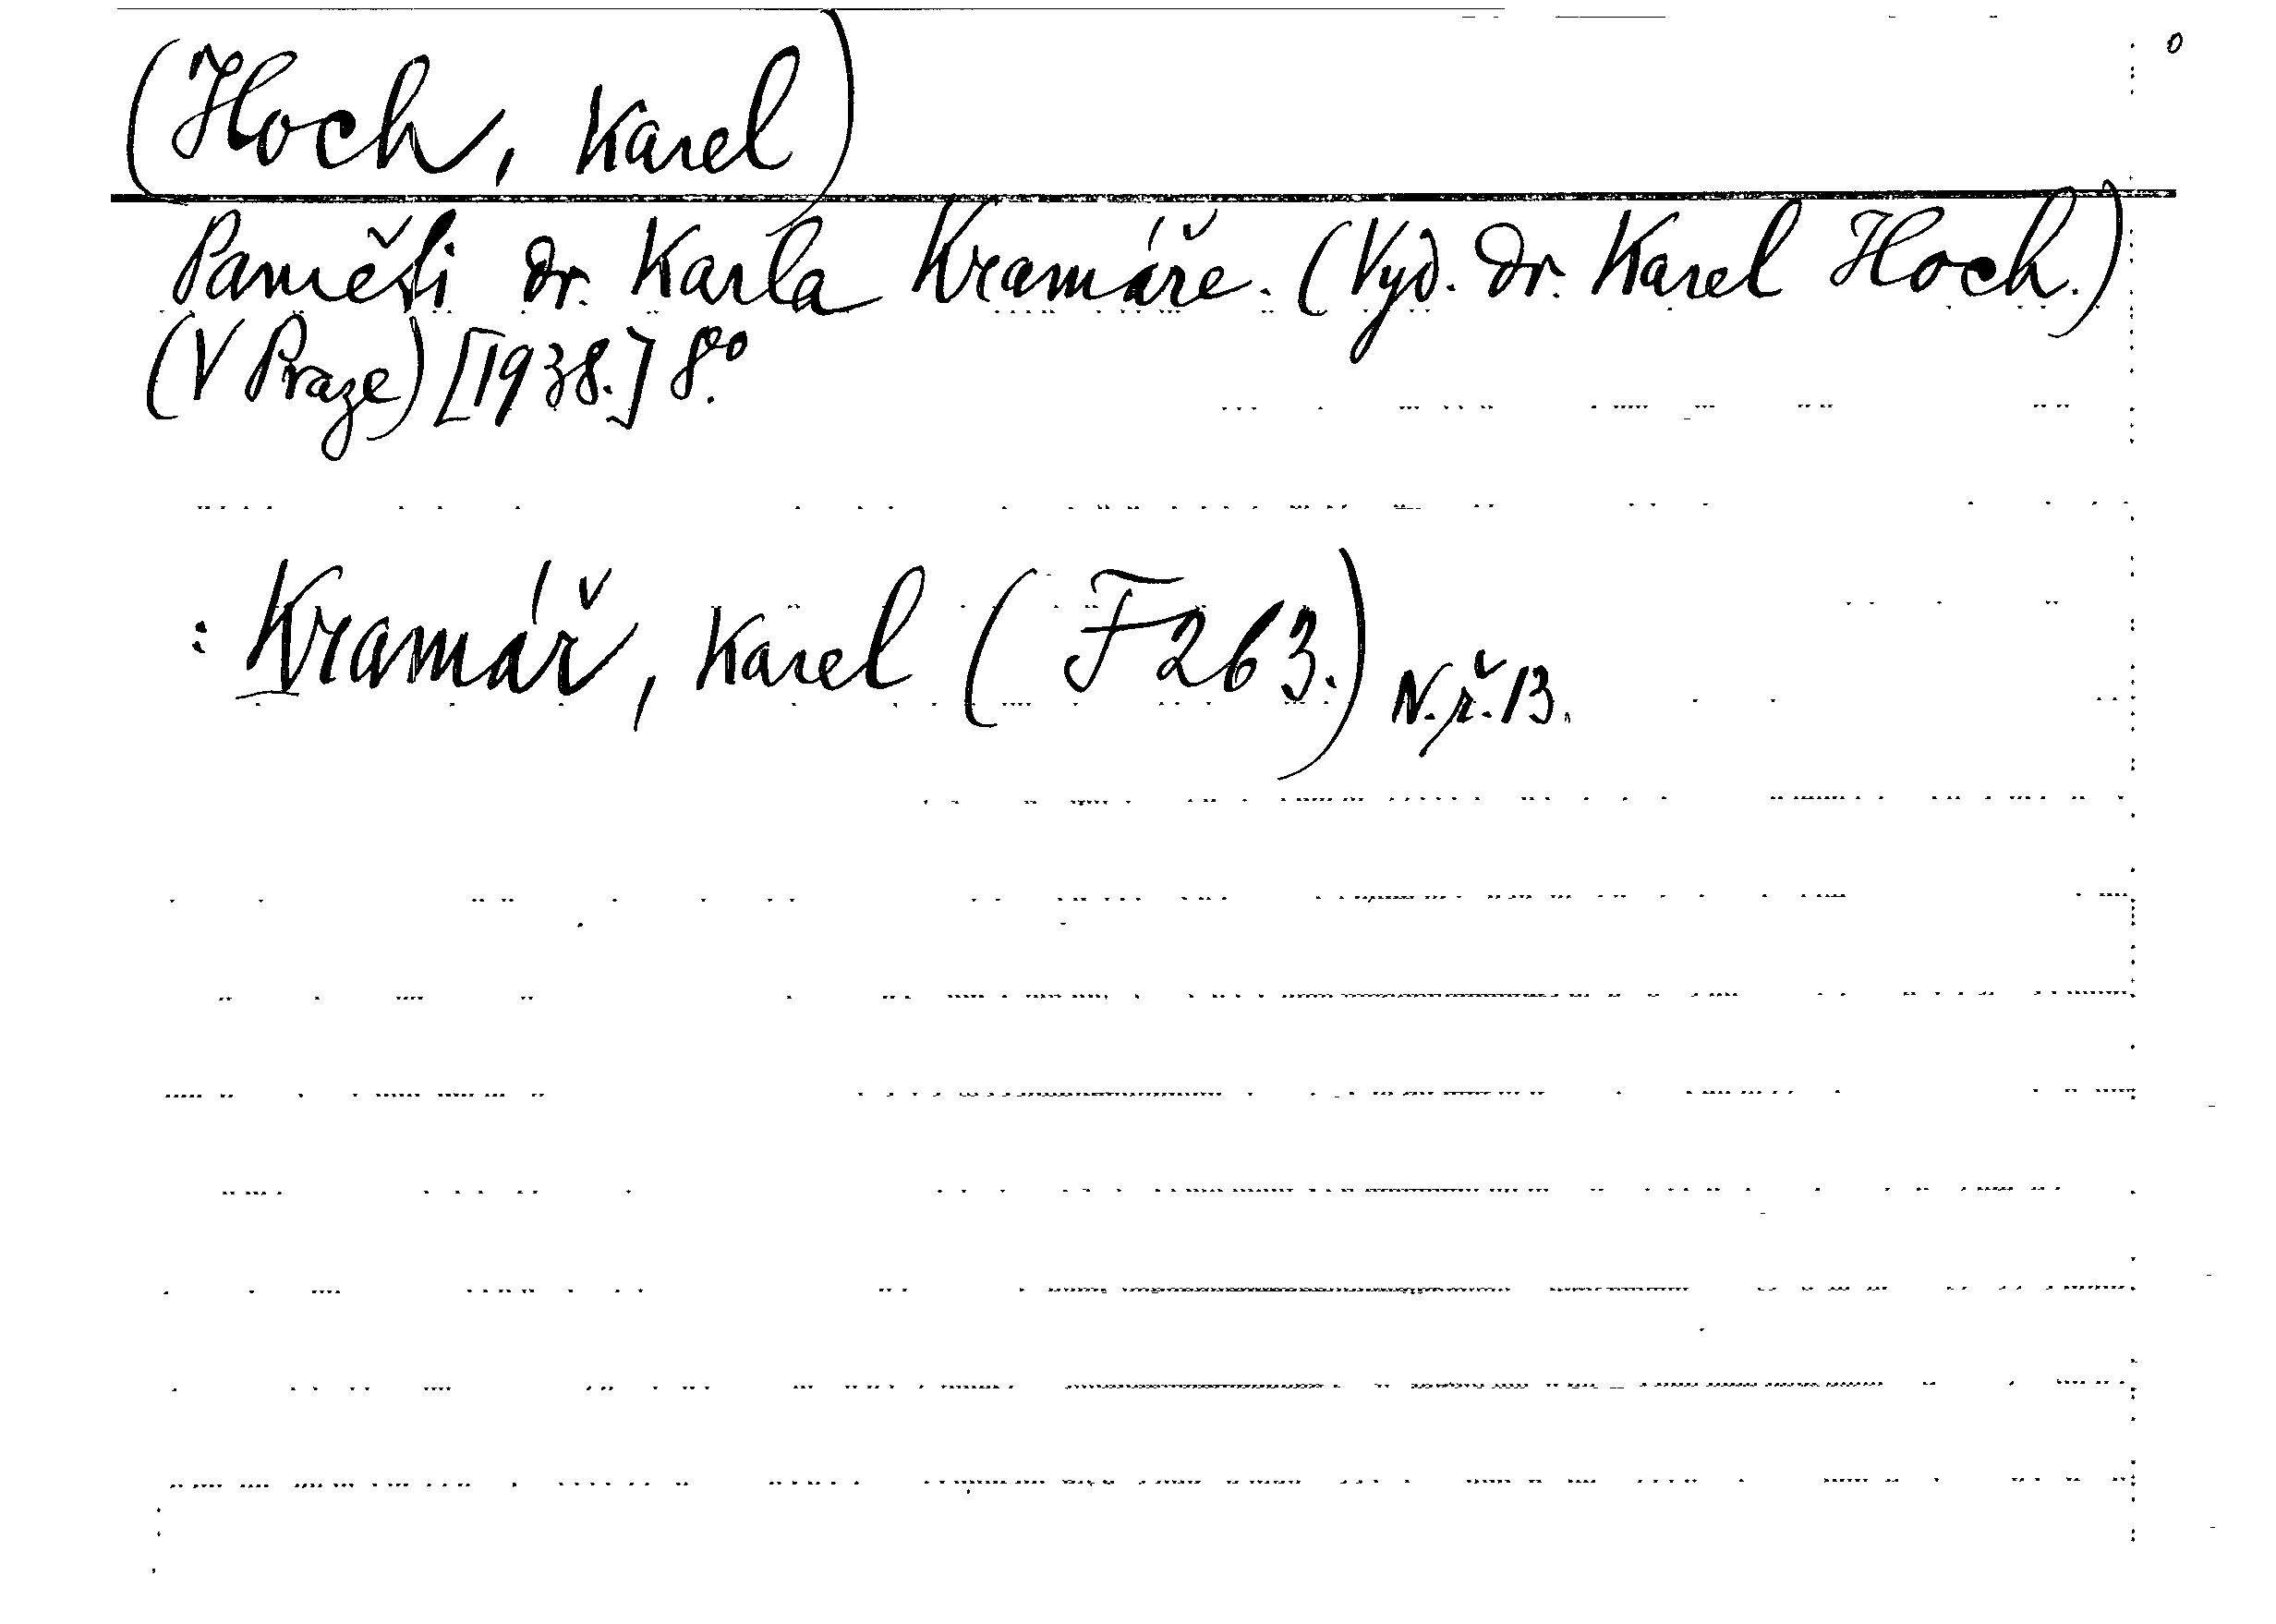 (Hoch, Karel)
Paměti dr. Karla Kramáře. (Vyd. Dr. Karel Hoch.)
(V Praze) [1938.] 8º.
: Kramář, Karel (F 263.) N.ř.13.